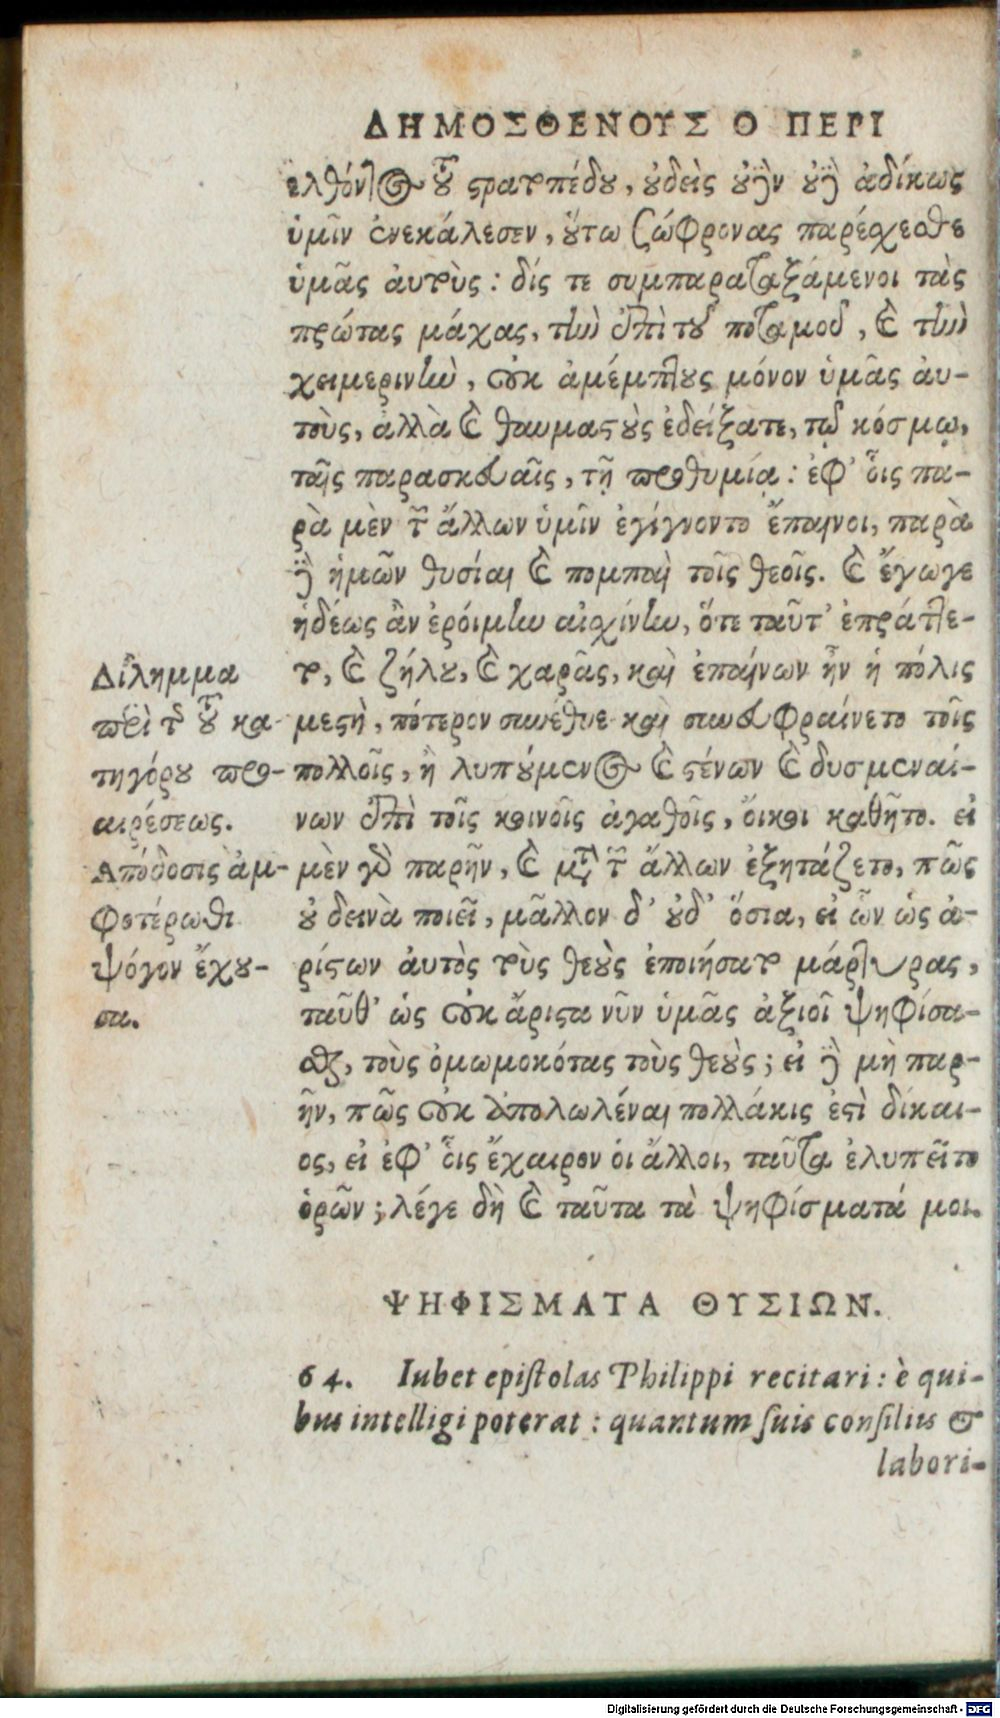 ΔΗΜΟΣΘΕΝΟΥΣ Ο ΠΕΡΙ
ελθόντος τοῦ στρατοπέδου, οὐδεὶς οὐδὲν οὐδὲ ἀδίκως
ὑμῖν ἐνεκάλεσεν, οὕτω σώφρονας παρέσχεσθε
ὑμᾶς αὐτοὺς: δίς τε συμπαραταξάμενοι τὰς
πρώτας μάχας, τὴν ἐπὶ τοῦ ποταμοῦ, καὶ τὴν
χειμερινὴν, οὐκ ἀμέμπτους μόνον ὑμᾶς αὐ-
τοὺς, ἀλλὰ καὶ θαυμαστοὺς ἐδείξατε, τῷ κόσμῳ,
ταῖς παρασκευαῖς, τῇ προθυμίᾳ: ἐφ' οἷς πα-
ρὰ μὲν τῶν ἄλλων ὑμῖν ἐγίγνοντο ἔπαινοι, παρὰ
δὲ ἡμῶν θυσίαι καὶ πομπαὶ τοῖς θεοῖς. καὶ ἔγωγε
ἡδέως ἂν ἐροίμην αἰσχίνην, ὅτε ταῦτ' ἐπράττε-
το, καὶ ζήλου, καὶ χαρᾶς, καὶ ἐπαίνων ἦν ἡ πόλις
μεστὴ, πότερον συνέθυε καὶ συνευφραίνετο τοῖς
πολλοῖς, ἢ λυπούμενος καὶ στένων καὶ δυσμεναί-
νων ἐπὶ τοῖς κοινοῖς ἀγαθοῖς, οἴκοι καθῆτο. εἰ
μὲν γὰρ παρῆν, καὶ μετὰ τῶν ἄλλων ἐξητάζετο, πῶς
οὐ δεινὰ ποιεῖ, μᾶλλον δ' οὐδ' ὅσια, εἰ ὧν ὡς ἀ-
ρίστων αὐτὸς τοὺς θεοὺς ἐποιήσατο μάρτυρας,
ταῦθ' ὡς οὐκ ἄριστα νῦν ὑμᾶς ἀξιοῖ ψηφίσα-
σθαι, τοὺς ὀμωμοκότας τοὺς θεοὺς; εἰ δὲ μὴ παρ-
ῆν, πῶς οὐκ ἀπολωλέναι πολλάκις ἐστὶ δίκαι-
ος, εἰ ἐφ' οἷς ἔχαιρον οἱ ἄλλοι, ταῦτα ἐλυπεῖτο
ὁρῶν; λέγε δὴ καὶ ταῦτα τὰ ψηφίσματά μοι.
Δίλημμα
περὶ τῆς τοῦ κα-
τηγόρου προ-
αιρέσεως.
Ἀπόδοσις ἀμ-
φοτέρωθι
ψόγον ἔχου-
σα.
ΨΗΦΙΣΜΑΤΑ ΘΥΣΙΩΝ.
64. Iubet epistolas Philippi recitari: è qui-
bus intelligi poterat: quantum suis consiliis &
labori-
Digitalisierung gefördert durch die Deutsche Forschungsgemeinschaft - DFG